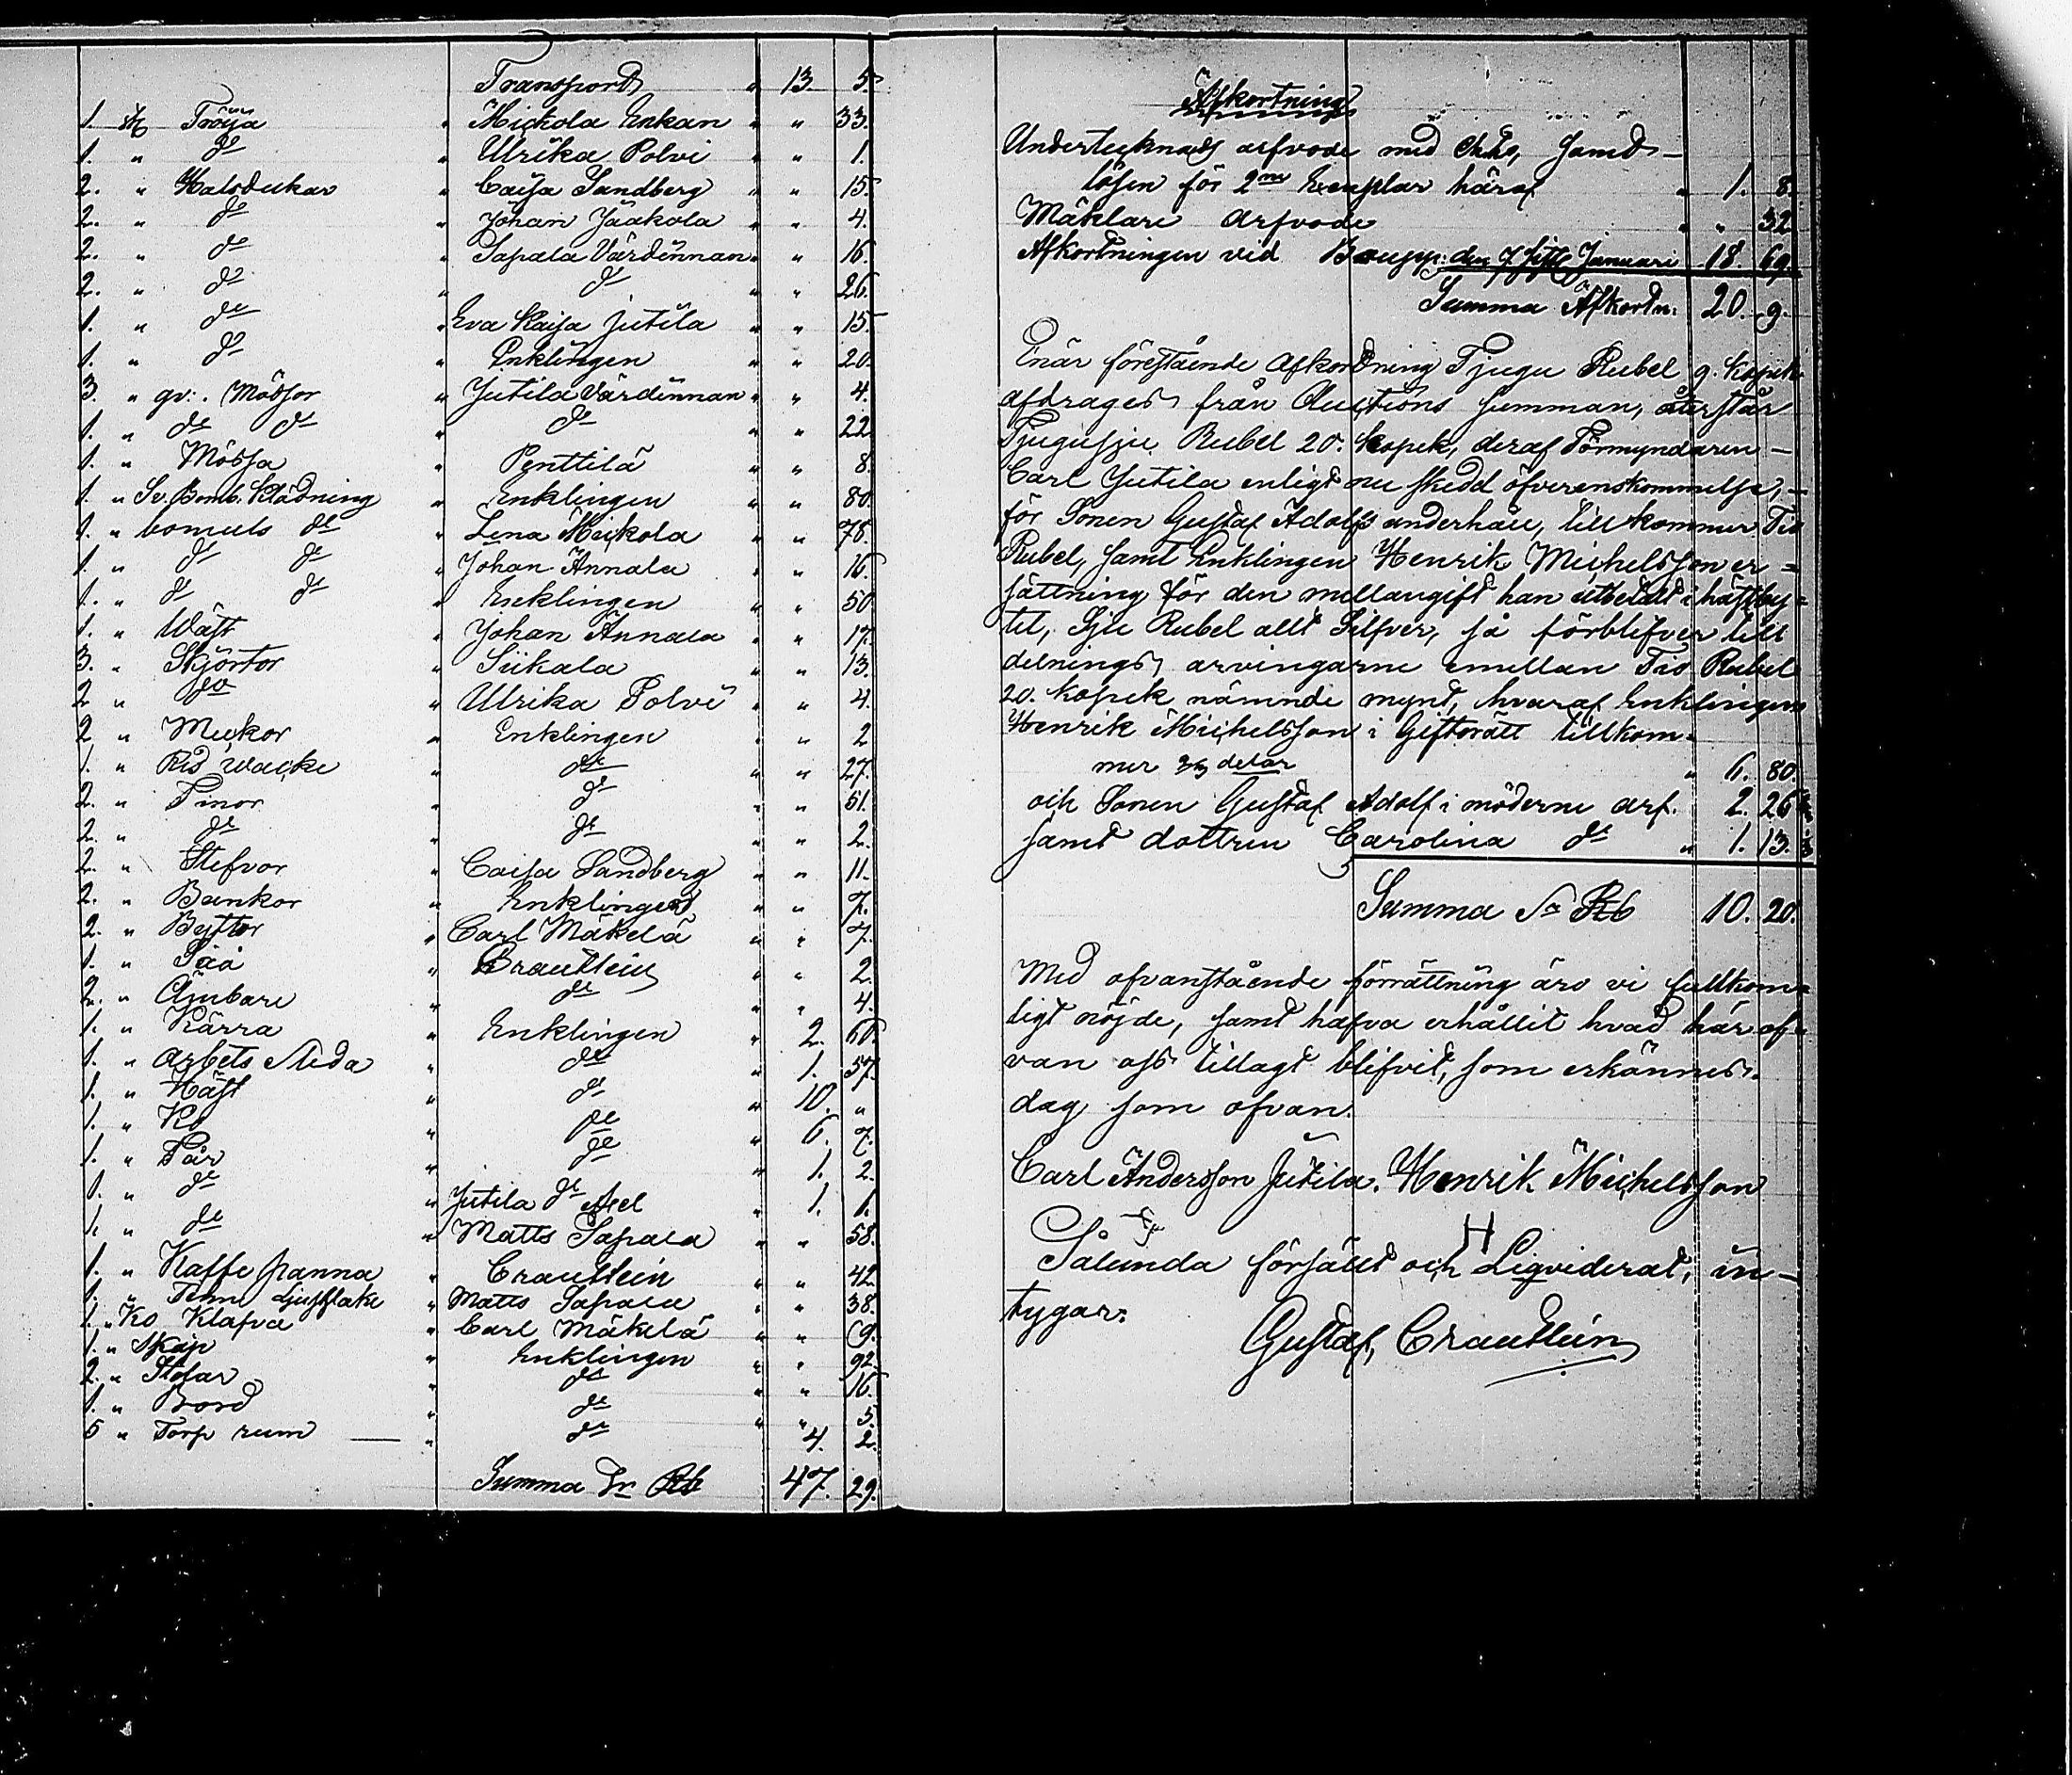 Transport " 13. 5.
1. st Tröja " Mickola Enkan " " 33.
1. " do " Ulrika Polvi " " 1.
2. " Halsdukar " Caisa Sandberg " " 15.
2. " do " Johan Jaakola " " 4.
2. " do " Sapala Värdinnan " " 16.
2. " do " do " " 26.
1. " do " Eva Kaisa Jutila " " 15.
1. " do " Enklingen " " 20.
3. " gv. Mössor " Jutila Värdinnan " " 4.
1. " do do " do " " 22.
1. " Mössa " Penttilä " " 8.
1. " Sv. Bomb. Klädning " Enklingen " " 80.
1. " bomuls do " Lena Mickola " " 75.
1. " do do " Johan Annala " " 16.
1. " do do " Enklingen " " 50.
1. " Wäst " Johan Annala " " 17.
3. " Skjortor " Siikala " " 13.
2 " do " Ulrika Polvi " " 4.
2 " Muckor " Enklingen " " 2
1. " Rid wacke " do " " 27.
2. " Pinor " do " " 51.
2. " do " do " " 2.
2. " Stefvor " Caisa Sandberg " " 11.
2. " Bunkor " Enklingen " " 7.
2. " Byttor " Carl Mäkelä " " 7.
1. " Såå " Brautlein " " 2.
2. " Ämbare " do " " 4.
1. " Kärra " Enklingen " 2. 60.
1. " Arbets släda " do " 1. 57.
1. " Häst " do " 10. "
1. " Ko " do " 6. 7.
1. " Får " do " 1. 2.
1. " do " Jutila do Axel " 1. 1.
1. " do " Matts Sapala " " 58.
1. " Kaffe panna " Crautlein " " 42
1. " Tenn Ljusstake " Matts Sapala " " 38.
1. " Ko Klafva " Carl Mäkelä " " 9.
1. " Skåp " Enklingen " " 92.
2. " Stolar " do " " 16.
1. " Bord " do " " 5.
5 " Torp rum " do " 4. 2.
Summa Sr Rb 47. 29.
Afkortning
Undertecknads arfvode med Chts, samt
lösen för 2ne Exemplar häraf " 1. 8.
Mäklare arfvode " " 32
Afkortningen vid Boupp: den 7 sistl Januari 18. 69.
Summa Afkortn: 20. 9.
Enär förestående afkortning Tjugu Rubel 9. Kopek
afdrages från Auctions summan, återstår
Tjugusju Rubel 20. Kopek, deraf Förmyndaren –
Carl Jutila enligt nu skedd öfverenskommelse, –
för Sonen Gustaf Adolfs underhåll, tillkommer Tio
Rubel, samt Enklingen Henrik Michelsson er=
sättning för den mellangift han utbetalt i hästby=
tet, Sju Rubel allt Silfver, så förblifver till
delnings arvingarne emellan Tio Rubel
20. Kopek nämnde mynt, hvaraf Enklingen
Henrik Michelsson i Giftorätt tillkom=
mer 2/3 delar " 6. 80.
och Sonen Gustaf Adolf i möderne arf. 2. 26
samt dottren Carolina do " 1. 13.
Summa Sr Rb 10. 20.
Med ofvanstående förrättning äro vi fullkom=
ligt nöjde, samt hafva erhållit hvad här of=
van oss tillagt blifvit, som erkännes.
dag som ofvan.
Carl Andersson Jutila. Henrik Michelsson
H
Sålunda försåldt och Liqviderat, in–
tygar:
Gustaf, Crautlein